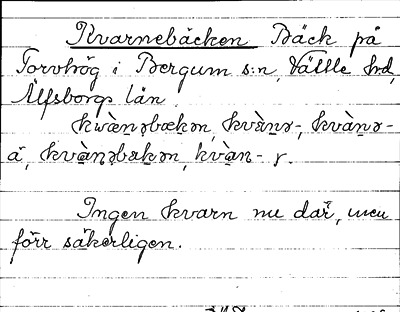 Kvarnebäcken Bäck på
Torvhög i Bergum s:n, Vättle hd,
Älfsborgs län.
kwæ̀nəbækən, kvàṇə-, kvàṇə-
å, kvàṇəbækən, kvàṇ- r.
Ingen kvarn nu där, men
förr säkerligen.